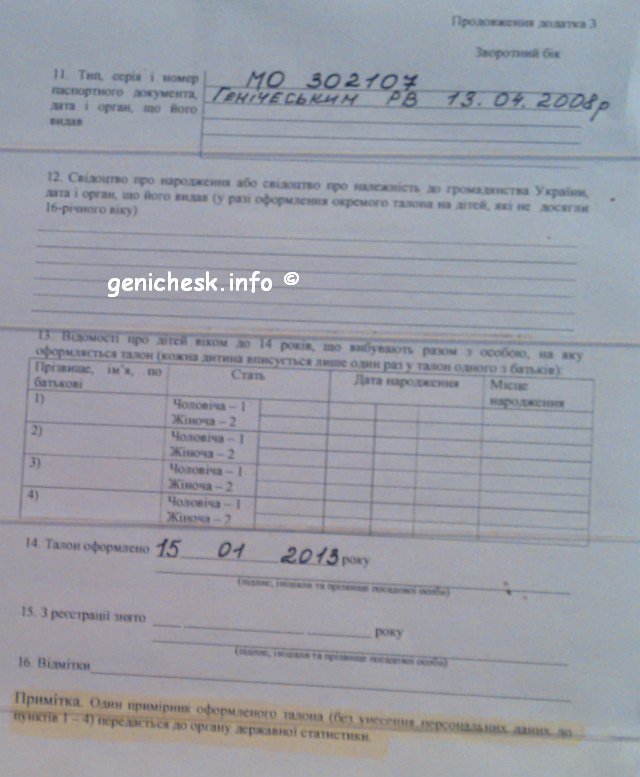 Продовження додатка 3
Зворотний бік
11. Тип, серія і номер
паспортного документа,
дата і орган, що його
видав
МО 302107
Генічеським РВ 13.04.2008р
12. Свідоцтво про народження або свідоцтво про належність до громадянства України,
дата і орган, що його видав (у разі оформлення окремого талона на дітей, які не досягли
16-річного віку)
genichesk.info ©
13. Відомості про дітей віком до 14 років, що вибувають разом з особою, на яку
оформляється талон (кожна дитина вписується лише один раз у талон одного з батьків):
Прізвище, ім'я, по
батькові
Стать
Дата народження
Місце
народження
1)
Чоловіча – 1
Жіноча – 2
2)
Чоловіча – 1
Жіноча – 2
3)
Чоловіча – 1
Жіноча – 2
4)
Чоловіча – 1
Жіноча – 2
14. Талон оформлено 15 01 2013 року
(підпис, ініціали та прізвище посадової особи)
15. З реєстрації знято
року
(підпис, ініціали та прізвище посадової особи)
16. Відмітки
Примітка. Один примірник оформленого талона (без унесення персональних даних до
пунктів 1 – 4) передається до органу державної статистики.